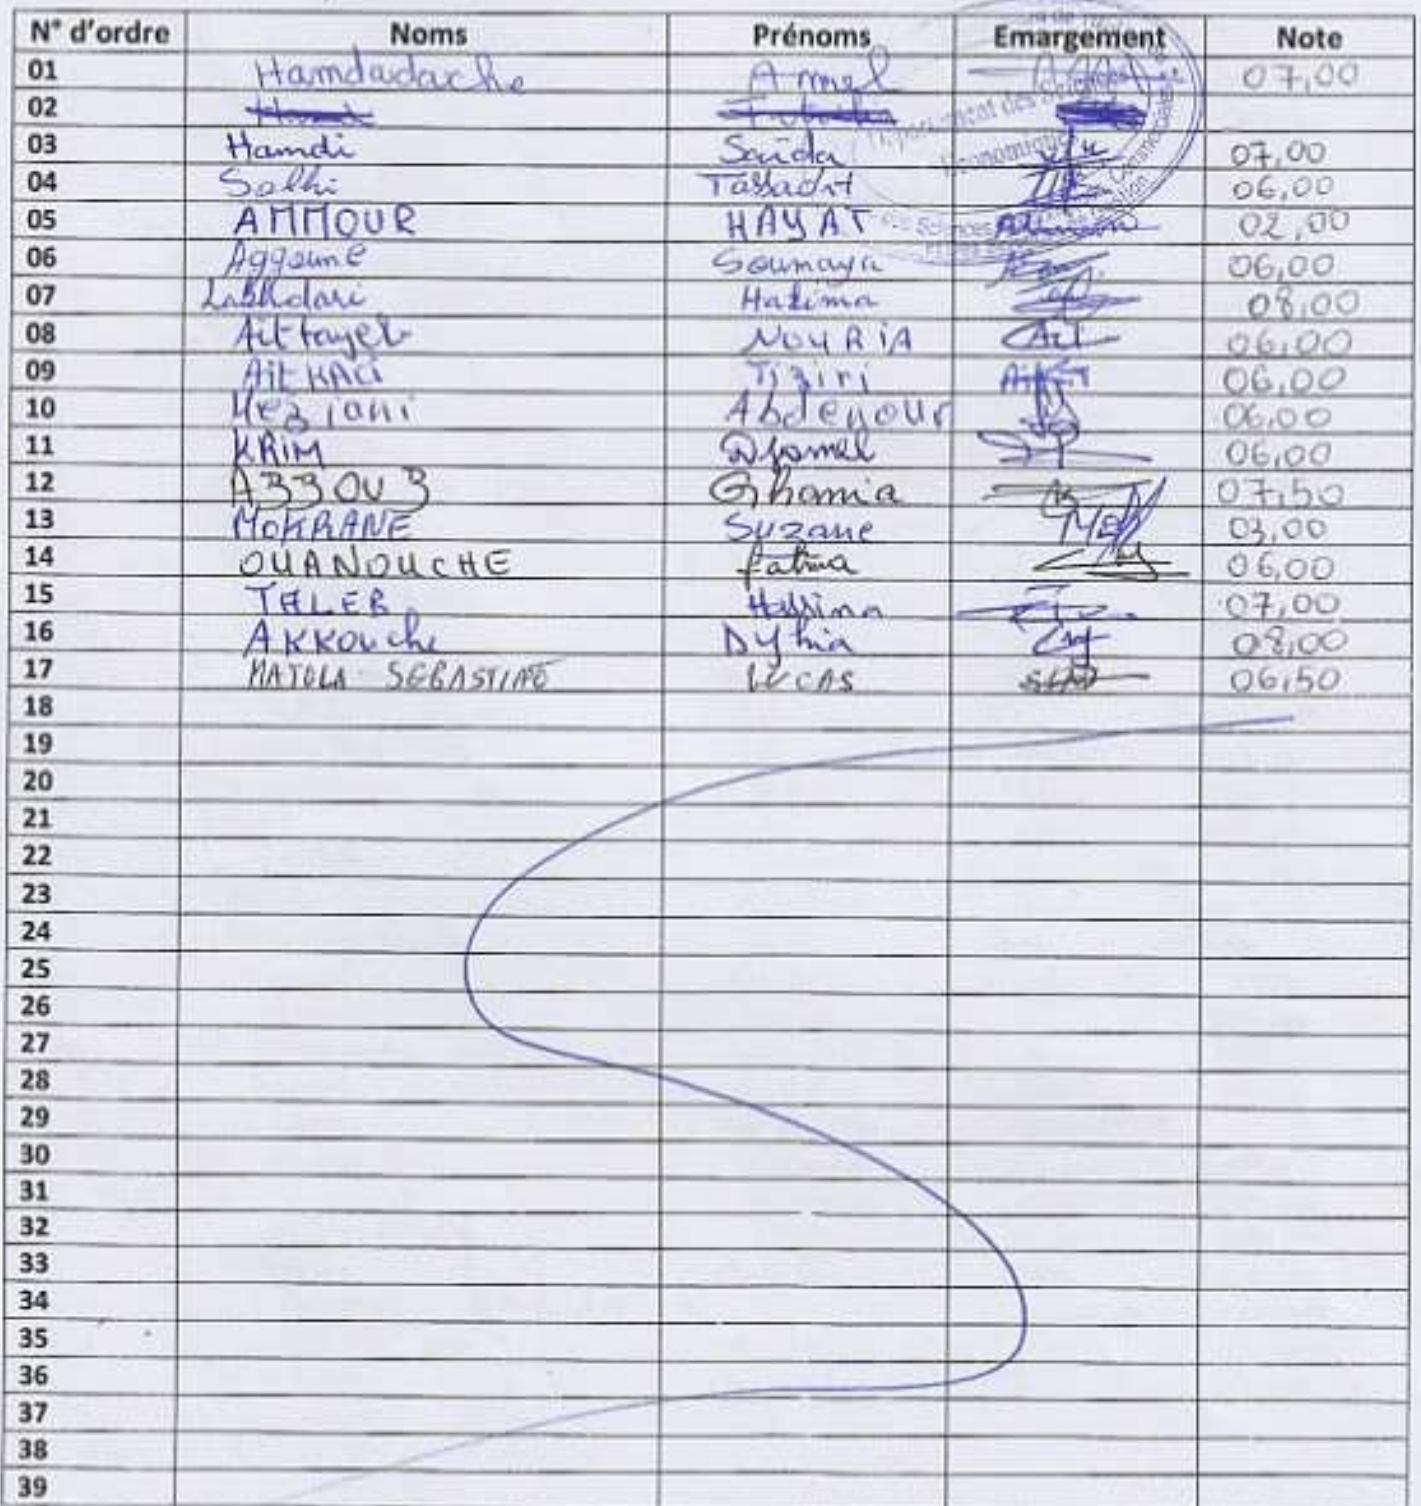 N° d'ordre Noms Prénoms Emargement Note
01 Hamdadache Amel 07,00
02
03 Hamdi Saida 07,00
04 Salhi Tassadit 06,00
05 AMMOUR HAYAT 02,00
06 Aggoune Soumaya 06,00
07 Lakhdari Hakima 08,00
08 Ait tayeb NOURIA 06,00
09 Ait KACI Tiziri 06,00
10 Meziani Abdenour 06,00
11 KRIM Djamel 06,00
12 Ghania 07,50
13 MOKRANE Suzane 03,00
14 OUANOUCHE fatma 06,00
15 TALEB Hassina 07,00
16 AKKOuche Dyhia 08,00
17 MATOLA SEBASTIAO LUCAS 06,50
18
19
20
21
22
23
24
25
26
27
28
29
30
31
32
33
34
35
36
37
38
39